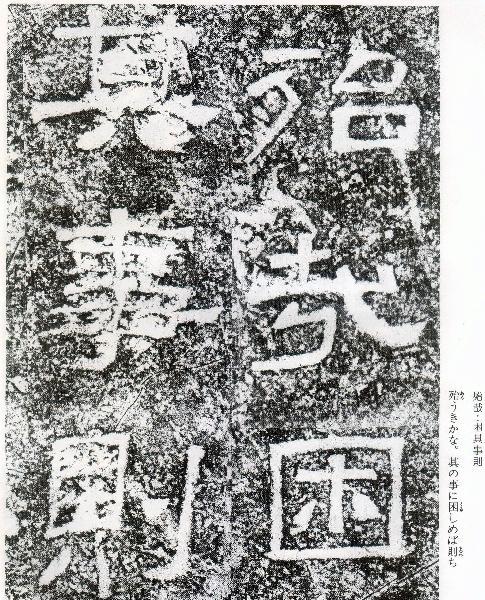 殆哉困
其事則
殆哉・困其事則
殆うきかな、其の事に困しめば則ち